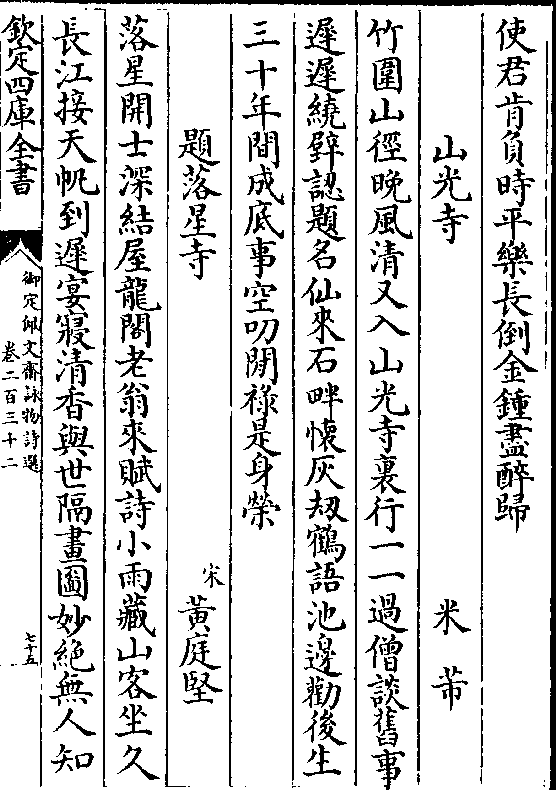 使君肯負時平樂長倒金鍾盡醉歸
山光寺　米芾
竹圍山徑晚風清又入山光寺裏行一一過僧談舊事
遲遲繞壁認題名仙來石畔懷灰刼鶴語池邊勸後生
三十年間成底事空叨閒祿是身榮
題落星寺　宋黃庭堅
落星開士深結屋龍閣老翁來賦詩小雨藏山客坐久
長江接天帆到遲宴寢清香與世隔畫圖妙絶無人知
欽定四庫全書
御定佩文齋詠物詩選
卷二百三十二
七十五